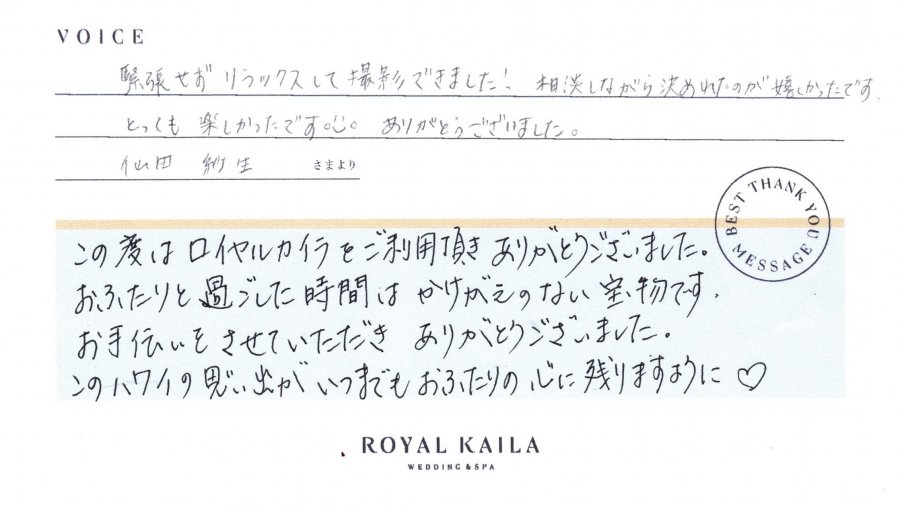 VOICE
緊張せず リラックスして 撮影できました! 相談しながら決めれたのが嬉しかったです.
とっても 楽しかったです。 ありがとうございました。
仙田 紗生 さまより
BEST THANK YOU MESSAGE
この度は ロイヤルカイラを ご利用頂き ありがとうございました。
おふたりと過ごした時間は かけがえのない宝物です.
お手伝いをさせていただき ありがとうございました.
このハワイの思い出が いつまでも おふたりの心に残りますように♡
ROYAL KAILA
WEDDING & SPA